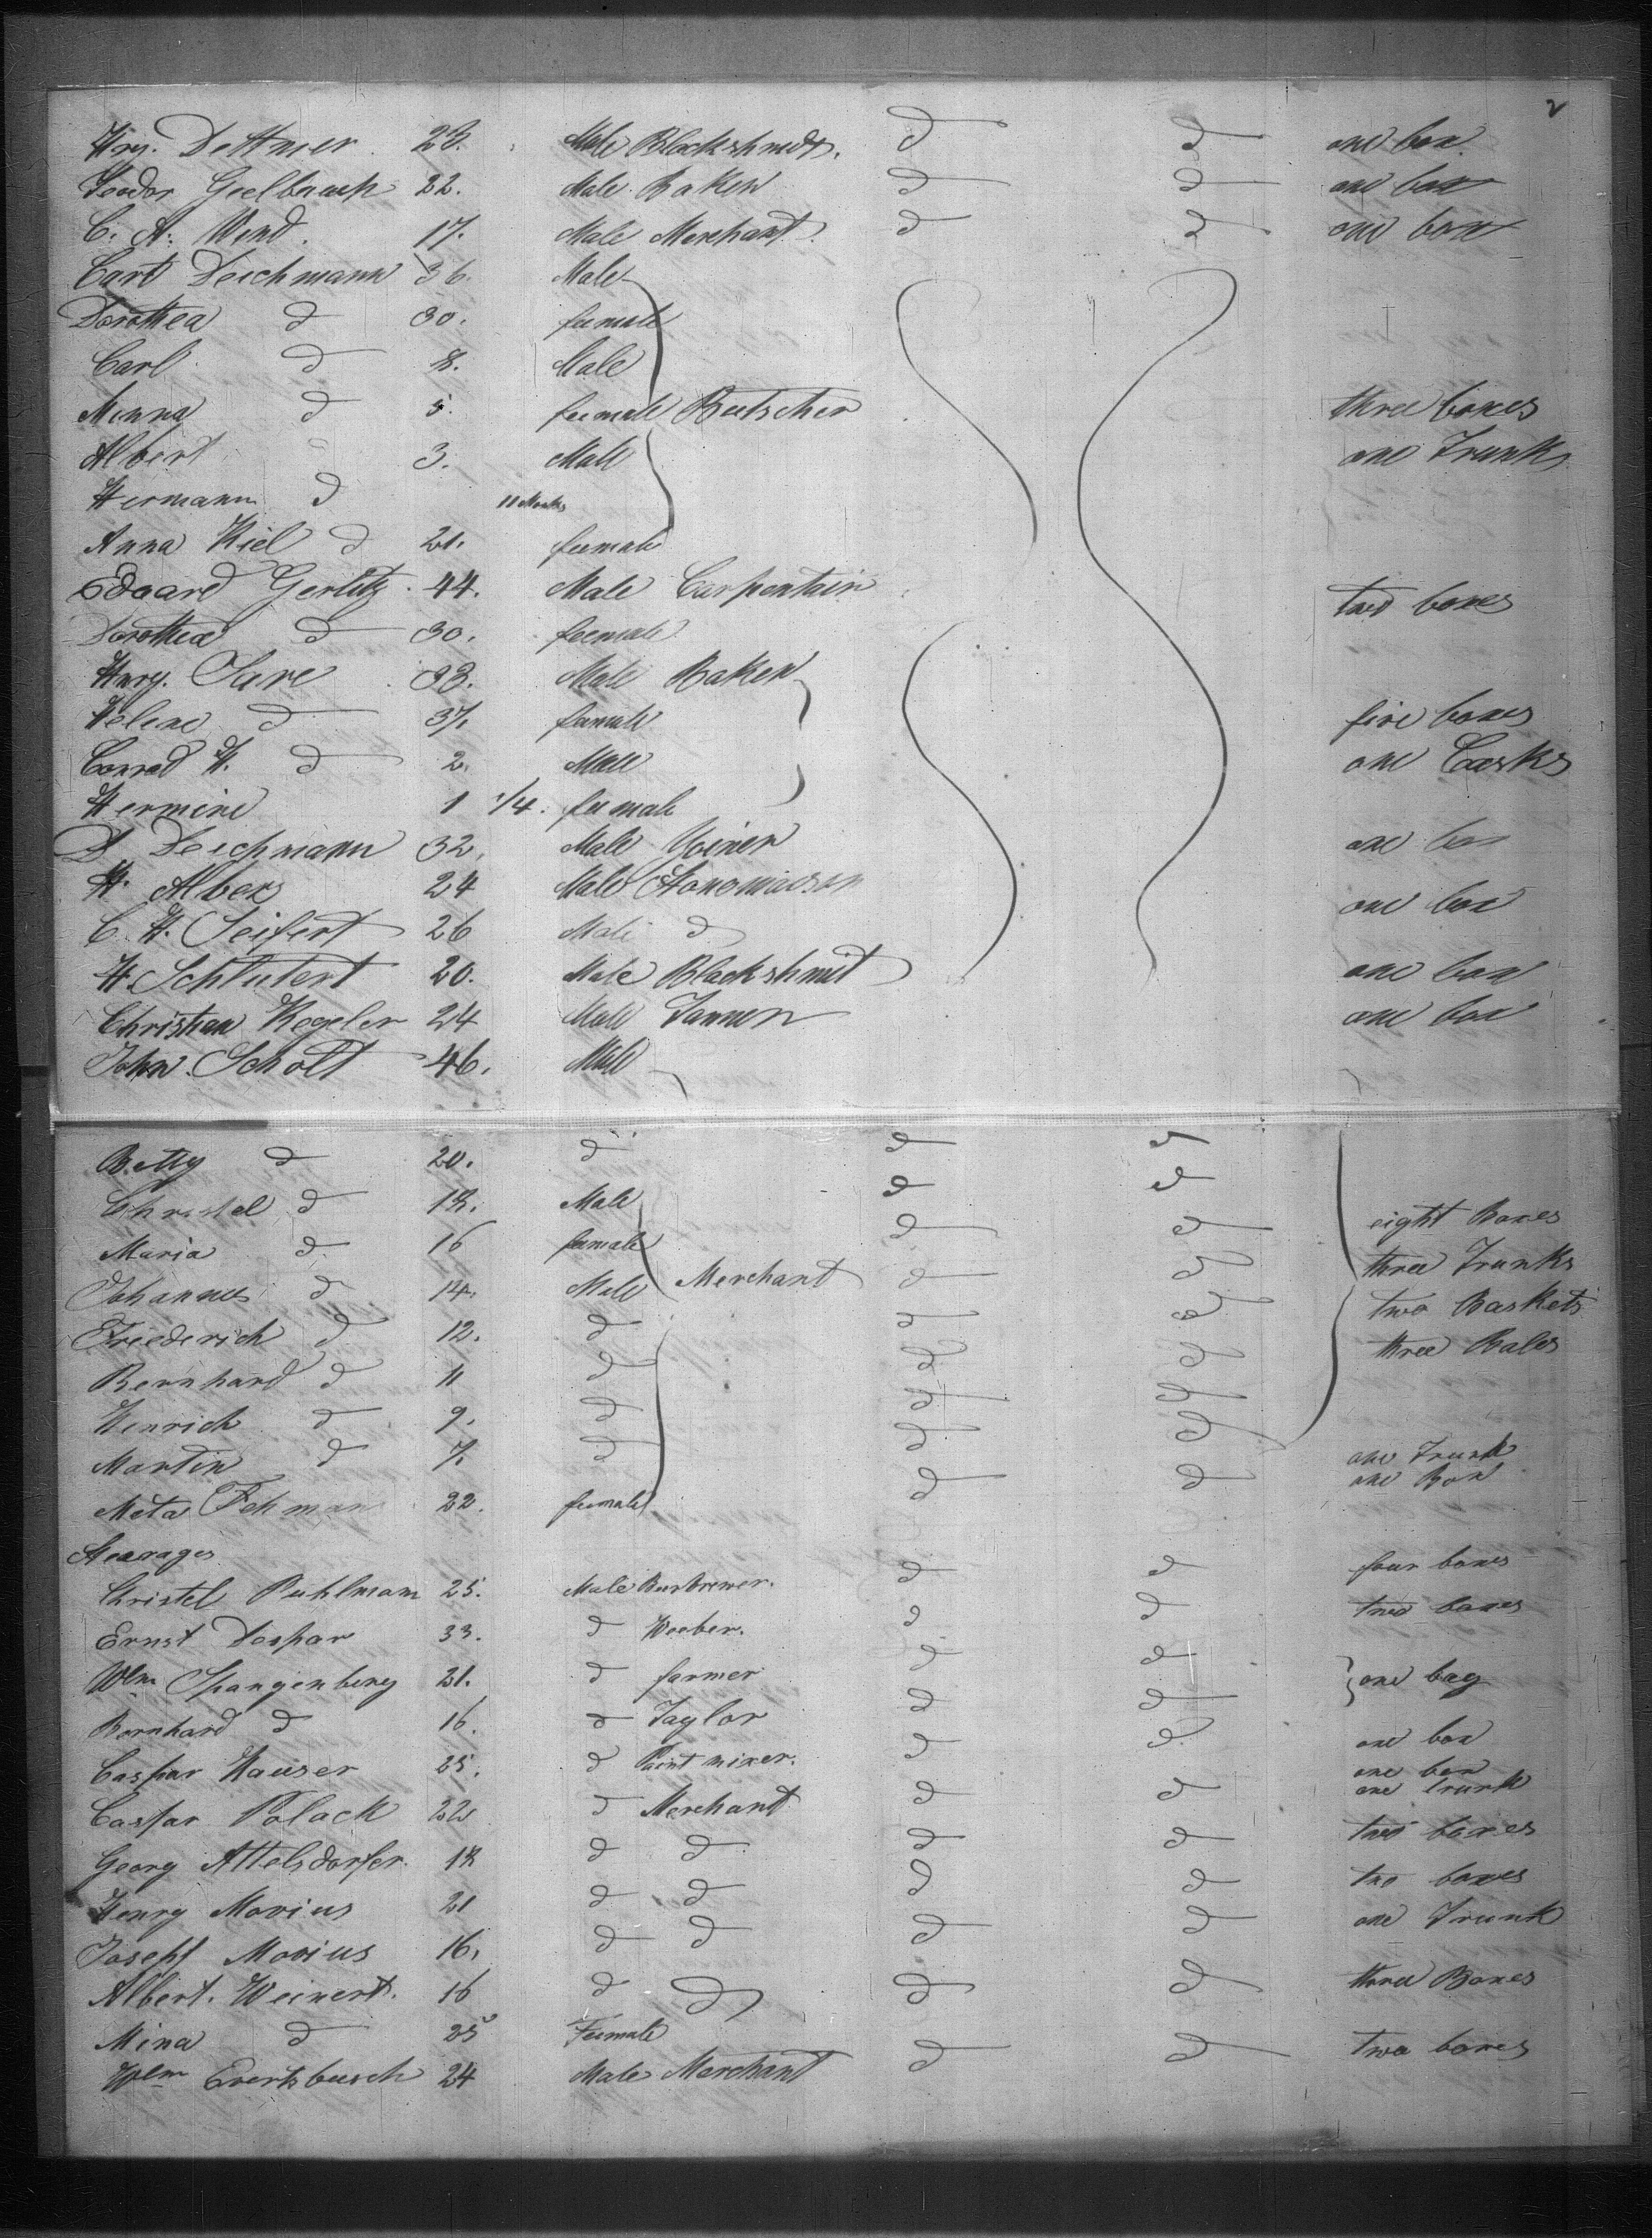 2
Hry. Dettmer 23. Male Blackshmidt. d d one box
Teodor Geelbraap 22. Male Baker d d one box
C. A. Wend. 17. Male Merchant. d d one box
Carl Deichmann 36. Male
Dorothea d 30. feemale
Carl d 8. Male
Minna d 5. feemale Butscher three boxes
Albert 3. Male one Trunk
Hermann d 11 Months
Anna Kiel d 21. feemale
Edoard Gerlitz. 44. Male Carpentain two boxes
Dorothea d 30. feemale
Hnry. Sare 33. Male Baker
Helene d 37. feemale five boxes
Conrad H. d 2. Male one Casks
Hermine 1 1/4. feemale
D Deichmann 32. Male Yoiner one box
H. Albers 24 Male Stonemason one box
C. H. Seifert 26 Male d
H. Schlutert 20. Male Blackshmit one box
Christian Kegeler 24 Male Tanner one box
John. Scholt 46. Male
Betty d 20. d d d
Christel d 18. Male d d eight Boxes
Maria d 16 feemale d d three Trunks
Johannes d 14. Male Merchant d d two Baskets
Friederich d 12. d d d three Bales
Bernhard d 11 d d d
Henrich d 9. d d d
Martin d 7. d d d one Trunk
Meta Fehman 22. feemale d d one Box
Stearages
Christel Puhlmann 25. Male Bierbrewer. d d four boxes
Ernst Dospar 33. d Weeber. d d two boxes
Wlm Spangenberg 21. d farmer d d one bag
Bernhard d 16. d Taylor d d
Caspar Hauser 25. d Paint mixer. d d one box
Caspar Polack 22 d Merchant d d one box one trunk
Georg Attelsdorfer. 18 d d d d two boxes
Henry Morius 21 d d d d two boxes
Joseph Morius 16. d d d d one Trunk
Albert. Weinert. 16 d d d d three Boxes
Mina d 25 Feemale
Wlm Evertsbusch 24 Male Merchant d d two boxes